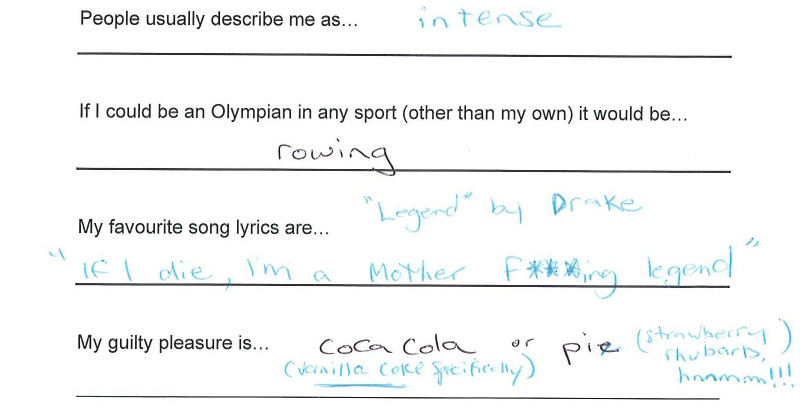 People usually describe me as... intense
If I could be an Olympian in any sport (other than my own) it would be...
rowing
"Legend" by Drake
My favourite song lyrics are...
"If I die, I'm a Mother F***ing legend"
My guilty pleasure is... Coca Cola or pie (strawberry rhubarb, hmmmm!!!)
(vanilla Coke specifically)